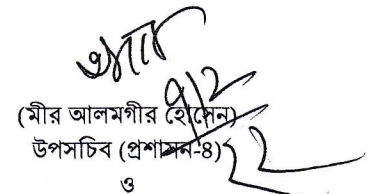 (মীর আলমগীর হোসেন)
উপসচিব (প্রশাসন-৪)
ও